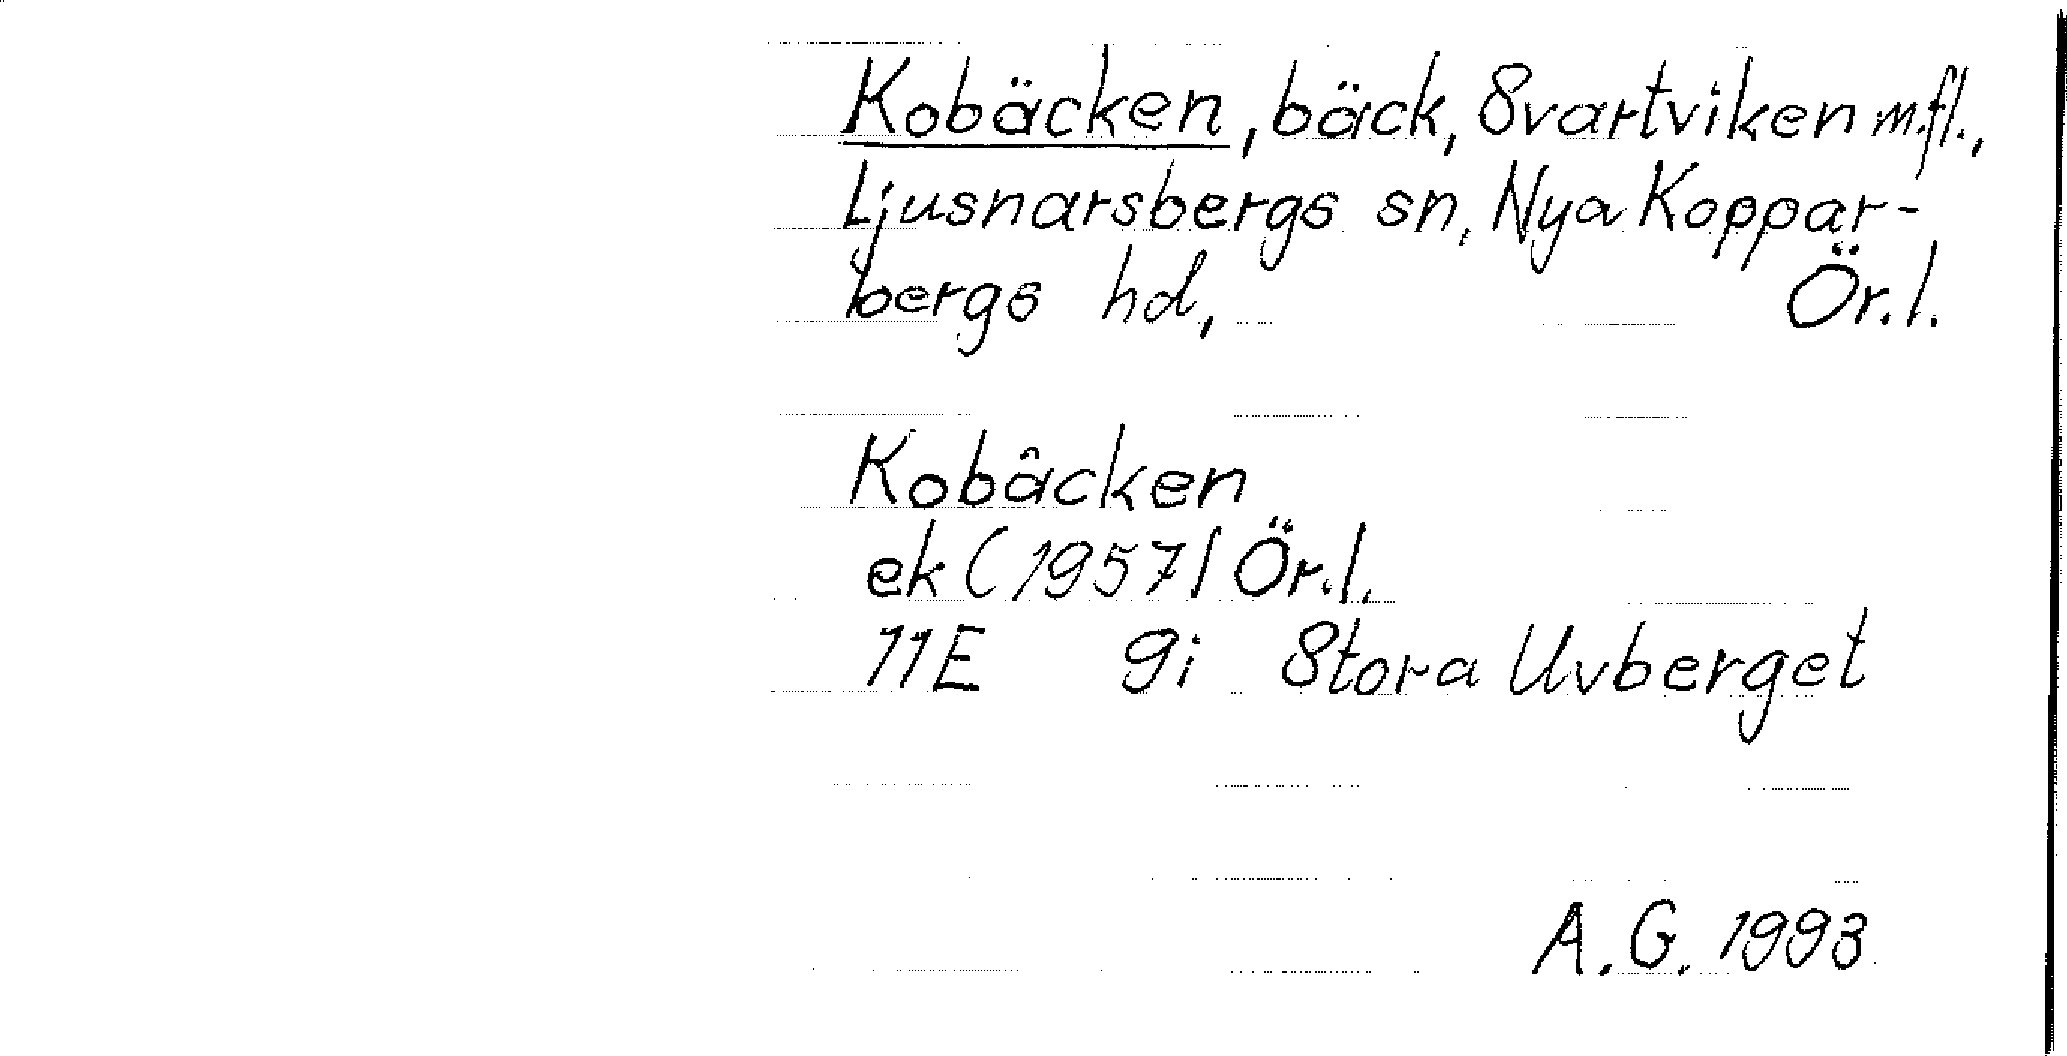 Kobäcken, bäck, Svartviken m.fl.,
Ljusnarsbergs sn, Nya Koppar-
bergs hd, Ör.l.
Kobäcken
ek (1957) Ör.l.
11E 9i Stora Uvberget
A.G. 1993